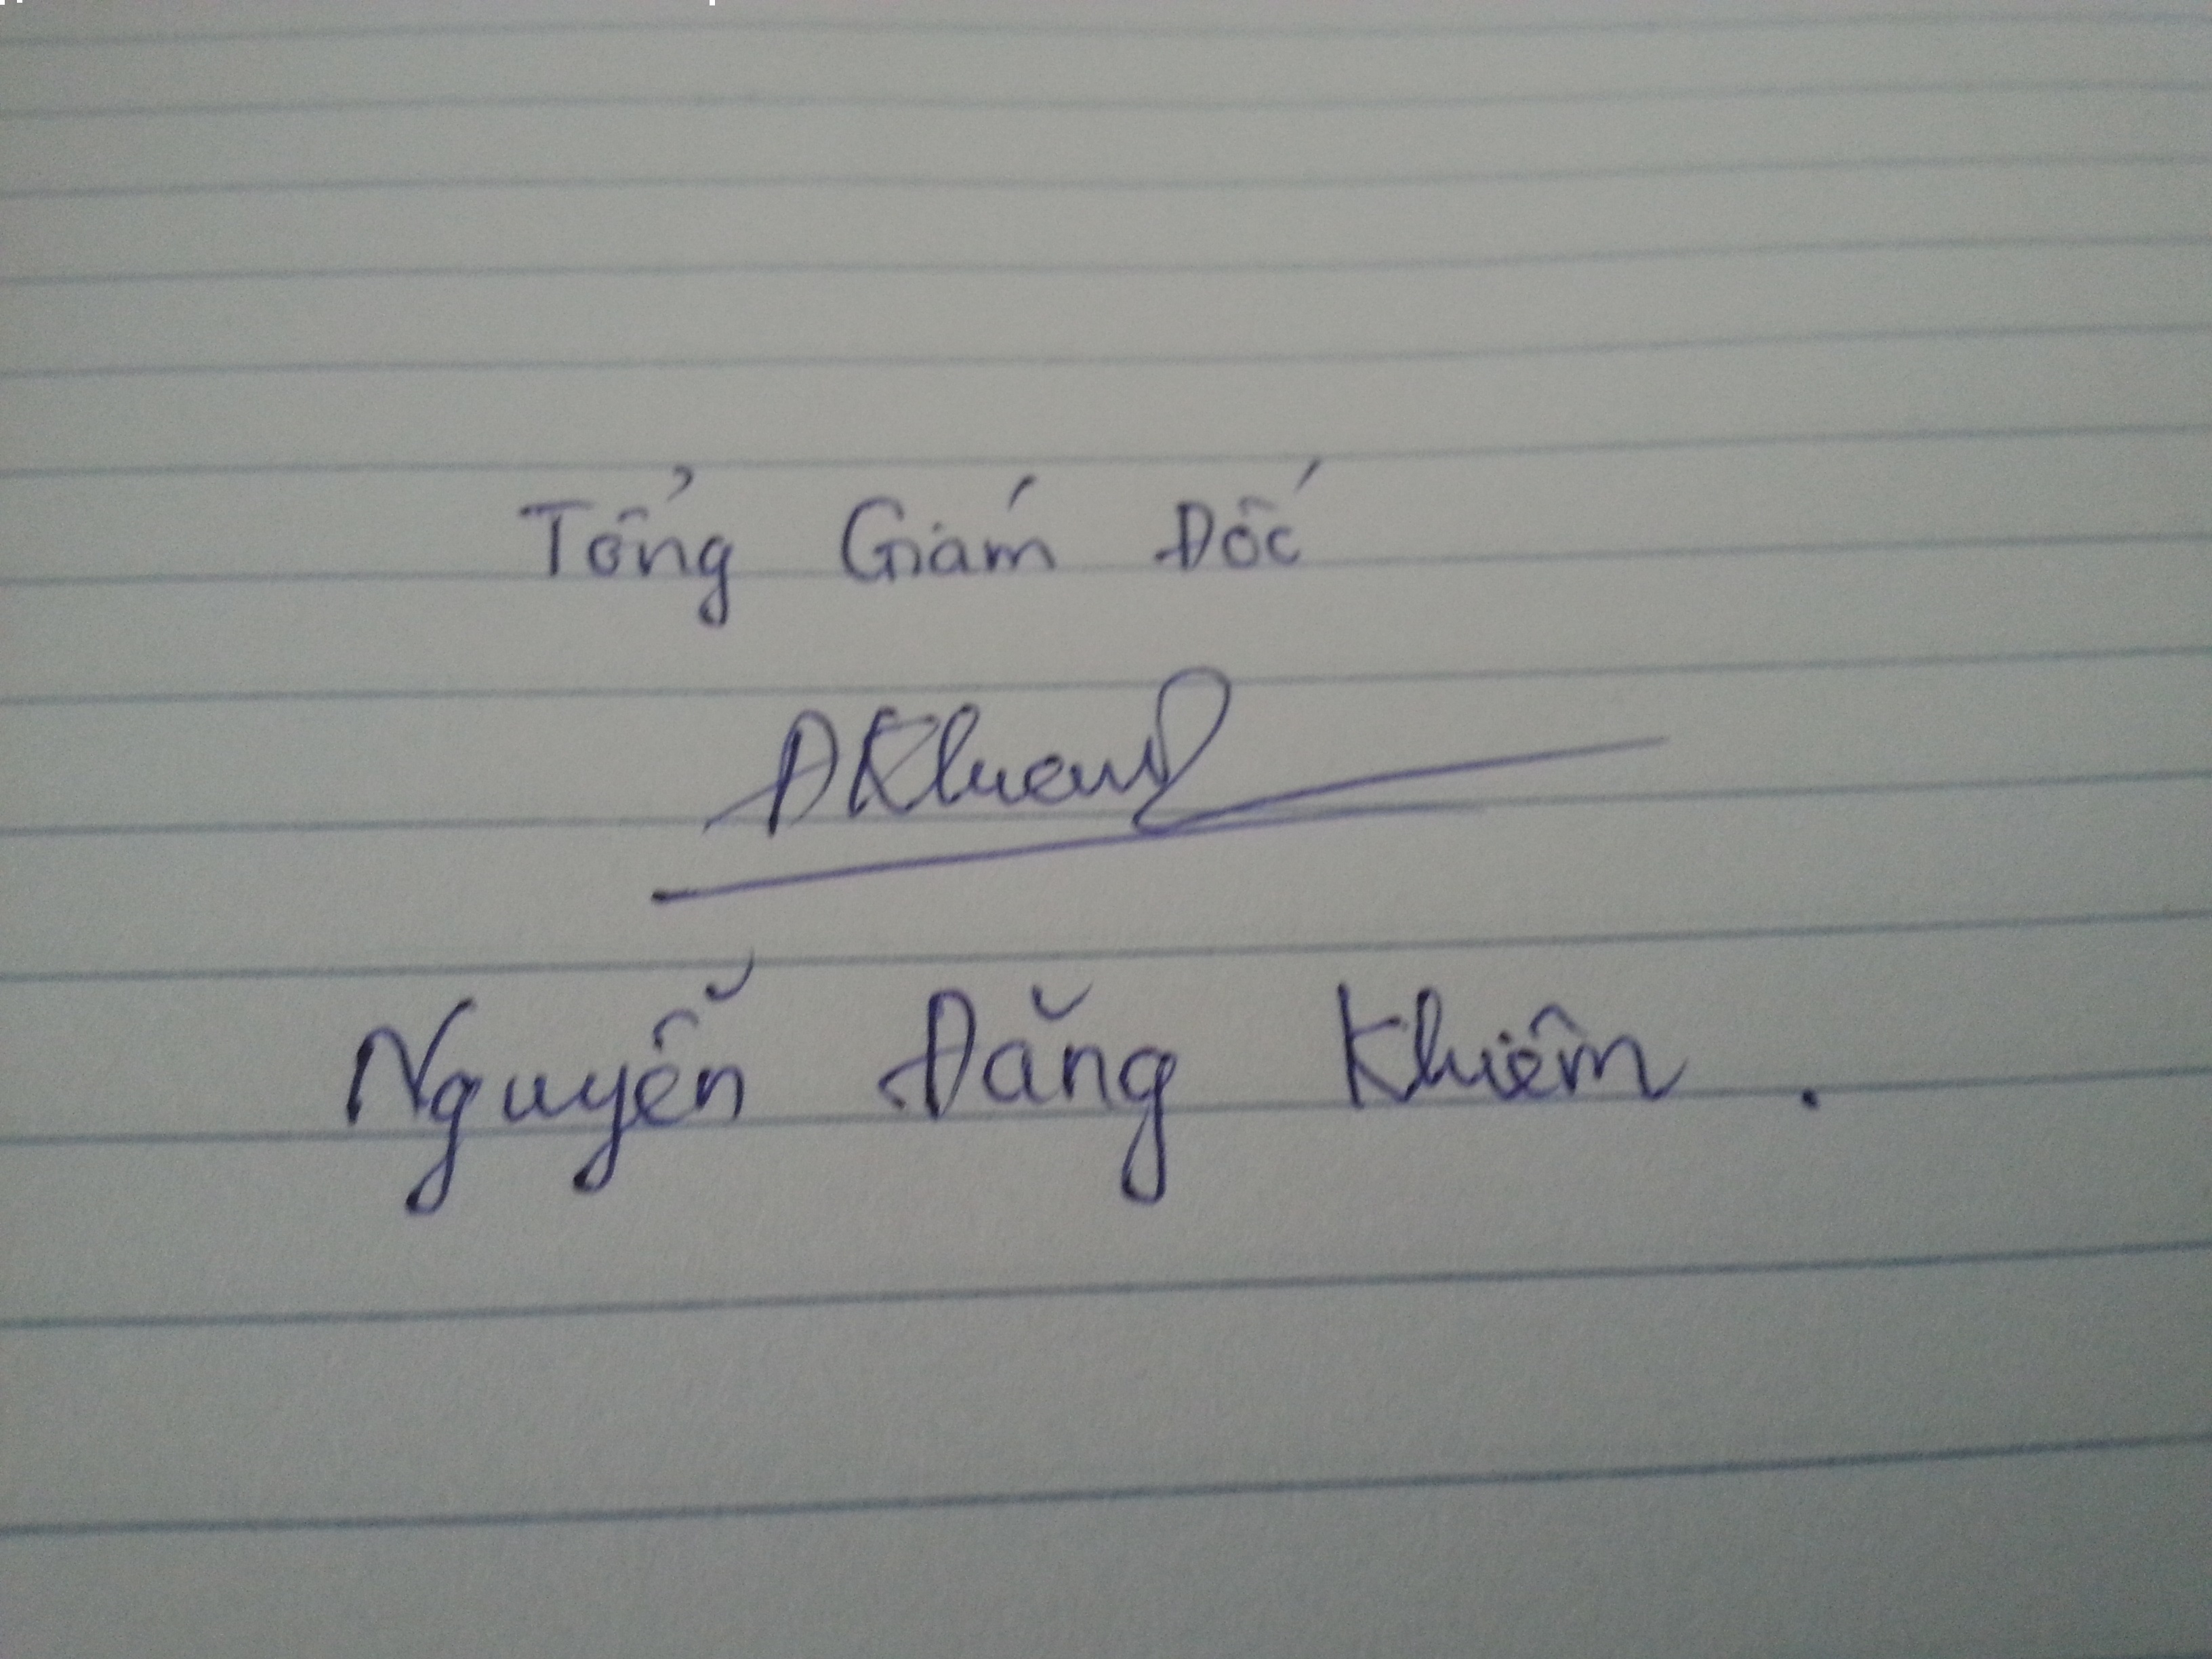 Tổng Giám Đốc
ĐKhiem
Nguyễn Đăng Khiêm.